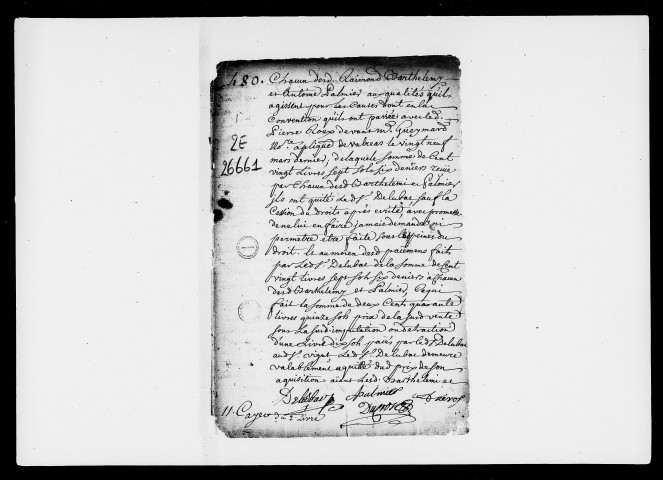 480.
2E
26661
Chacun desd. Raimond Barthelemy
et Antoine Palmier aux qualités quils
agissent pour les Causes dont en lac
Convention quils ont passée avec led.
Pierre Roux devant Me. Gueymard
No.re aplique de valreas le vingt neuf
mars dernier, de laquele somme de Cent
vingt livres sept sols six deniers reçue
par Chacun desd Barthelemi et Palmier
ils ont quité Led. Sr. Delubac sauf la
Cession de droit après ecrite, avec promesse
de ne lui en faire jamais demande ni
permetre etre faite sous les peines du
droit. le au moien desd paiemens faits
par Led Sr. Delubac de la Somme de Cent
vingt livres sept sols six deniers a Chacun
desd Barthelemy et Palmier, Ce qui
fait la somme de deux Cents quarante
livres quinze sols prix de la susd vente
sous la susd imputation ou detraction
d'une livre dix sols paiés par led Sr. Delubac
aud Sr. Led Sr. Delubac demeure
valablement aquité du prix de son
aquisition aiant Lesd. Barthelemi et
Delubac Palmier
11. Cayer du 2 Livre